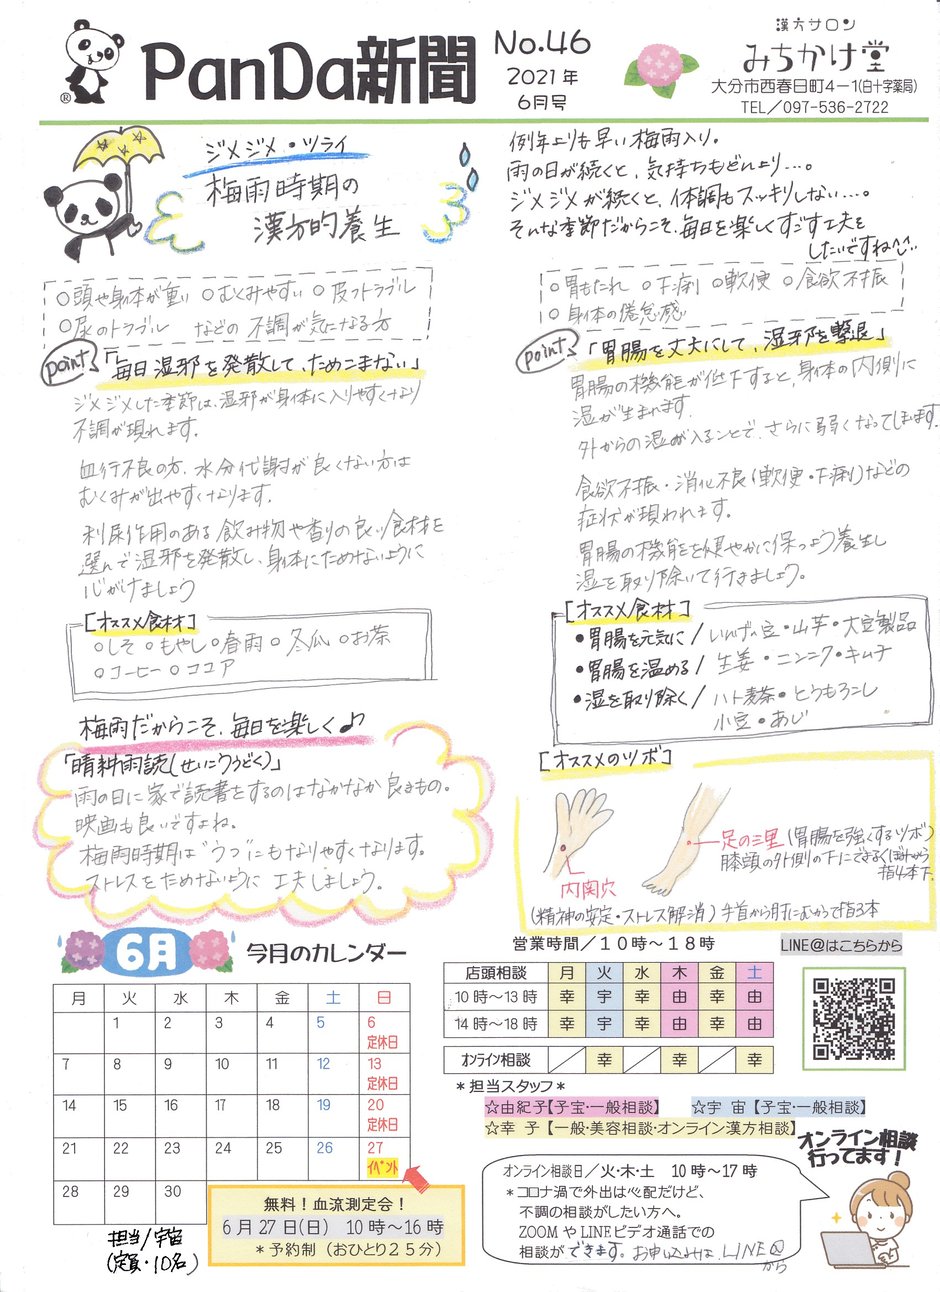 PanDa新聞
®
No.46
2021年
6月号
漢方サロン
みちかけ堂
大分市西春日町4−1(白十字薬局)
TEL／097-536-2722
ジメジメ・ツライ
梅雨時期の
漢方的養生
例年よりも早い梅雨入り。
雨の日が続くと、気持ちもどんより…。
ジメジメが続くと、体調もスッキリしない…。
そんな季節だからこそ、毎日を楽しくすごす工夫を
したいですね^^
○頭や身体が重い ○むくみやすい ○皮フトラブル
○尿のトラブル などの不調が気になる方
point 「毎日湿邪を発散して、ためこまない」
ジメジメした季節は、湿邪が身体に入りやすくなり
不調が現れます。
血行不良の方、水分代謝が良くない方は
むくみが出やすくなります。
利尿作用のある飲み物や香りの良い食材を
選んで湿邪を発散し、身体にためないように
心がけましょう
[オススメ食材]
○しそ ○もやし ○春雨 ○冬瓜 ○お茶
○コーヒー ○ココア
○胃もたれ ○下痢 ○軟便 ○食欲不振
○身体の倦怠感
point 「胃腸を丈夫にして、湿邪を撃退」
胃腸の機能が低下すると、身体の内側に
湿が生まれます。
外からの湿が入ることで、さらに弱くなってしまいます。
食欲不振・消化不良(軟便・下痢)などの
症状が現われます。
胃腸の機能を健やかに保つよう養生し
湿を取り除いて行きましょう。
[オススメ食材]
●胃腸を元気に/いんげん豆・山芋・大豆製品
●胃腸を温める/生姜・ニンニク・キムチ
●湿を取り除く/ハト麦茶・とうもろこし
小豆・あじ
梅雨だからこそ、毎日を楽しく♪
「晴耕雨読(せいこううどく)」
雨の日に家で読書をするのはなかなか良きもの。
映画も良いですよね。
梅雨時期は"うつ"にもなりやすくなります。
ストレスをためないように工夫しましょう。
[オススメのツボ]
足の三里(胃腸を強くするツボ)
膝頭の外側の下にできるくぼみから
指4本下。
内関穴
(精神の安定・ストレス解消)手首から肘にむかって指3本
6月 今月のカレンダー
月 火 水 木 金 土 日
1 2 3 4 5 6
定休日
7 8 9 10 11 12 13
定休日
14 15 16 17 18 19 20
定休日
21 22 23 24 25 26 27
イベント
28 29 30
担当/宇宙
(定員・10名)
無料！血流測定会！
6月27日(日) 10時〜16時
＊予約制（おひとり25分）
営業時間／10時〜18時
LINE@はこちらから
店頭相談 月 火 水 木 金 土
10時〜13時 幸 宇 幸 由 幸 由
14時〜18時 幸 宇 幸 由 幸 由
オンライン相談 幸 幸 幸
＊担当スタッフ＊
☆由紀子【子宝・一般相談】 ☆宇 宙【子宝・一般相談】
☆幸 子【一般・美容相談・オンライン漢方相談】
オンライン相談
行ってます！
オンライン相談日／火・木・土 10時〜17時
＊コロナ渦で外出は心配だけど、
不調の相談がしたい方へ。
ZOOMやLINEビデオ通話での
相談ができます。お申し込みは、LINE@
から